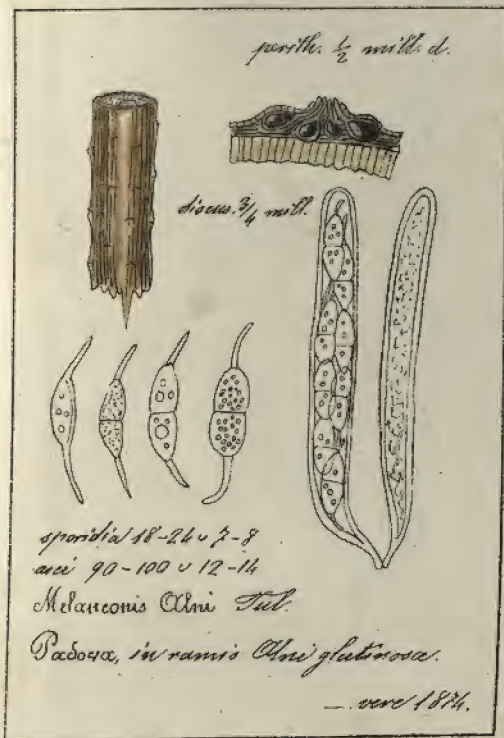 perith. 1/2 mill. d.
discus. 3/4 mill.
sporidia 18-24 v 7-8
asci 90-100 v 12-14
Melanconis Alni Tul.
Padova, in ramis Alni glutinosa.
— vere 1874.